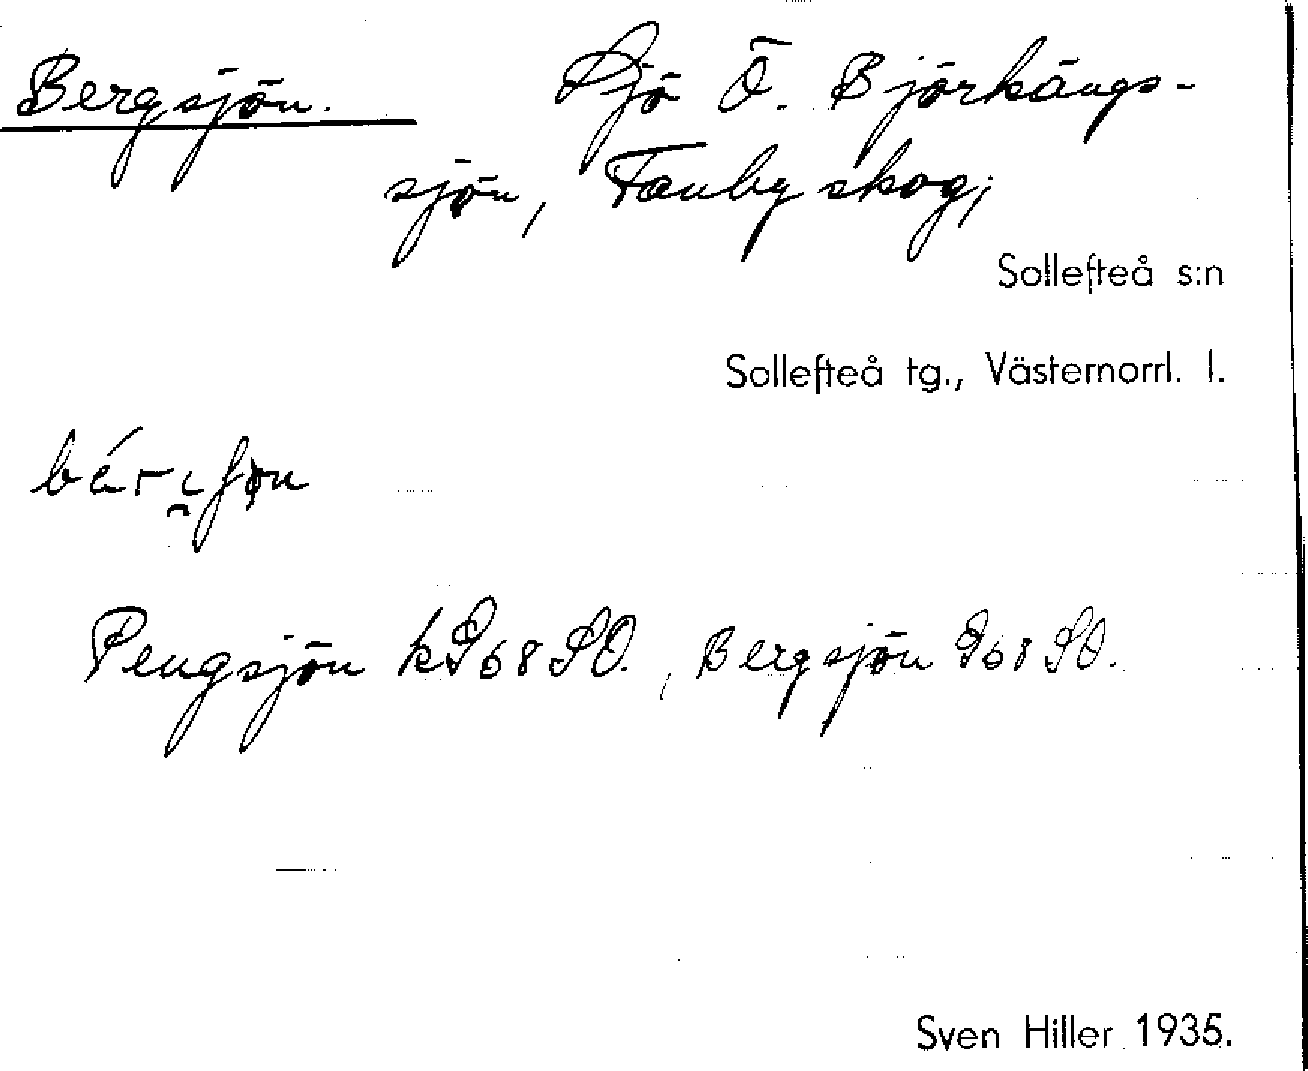 Bergsjön. Sjö Ö. Björkängs-
sjön, Tanby skog;
Sollefteå s:n
Sollefteå tg., Västernorrl. l.
Pengsjön k 68 SO., Bergsjön 68 SO.
Sven Hiller 1935.